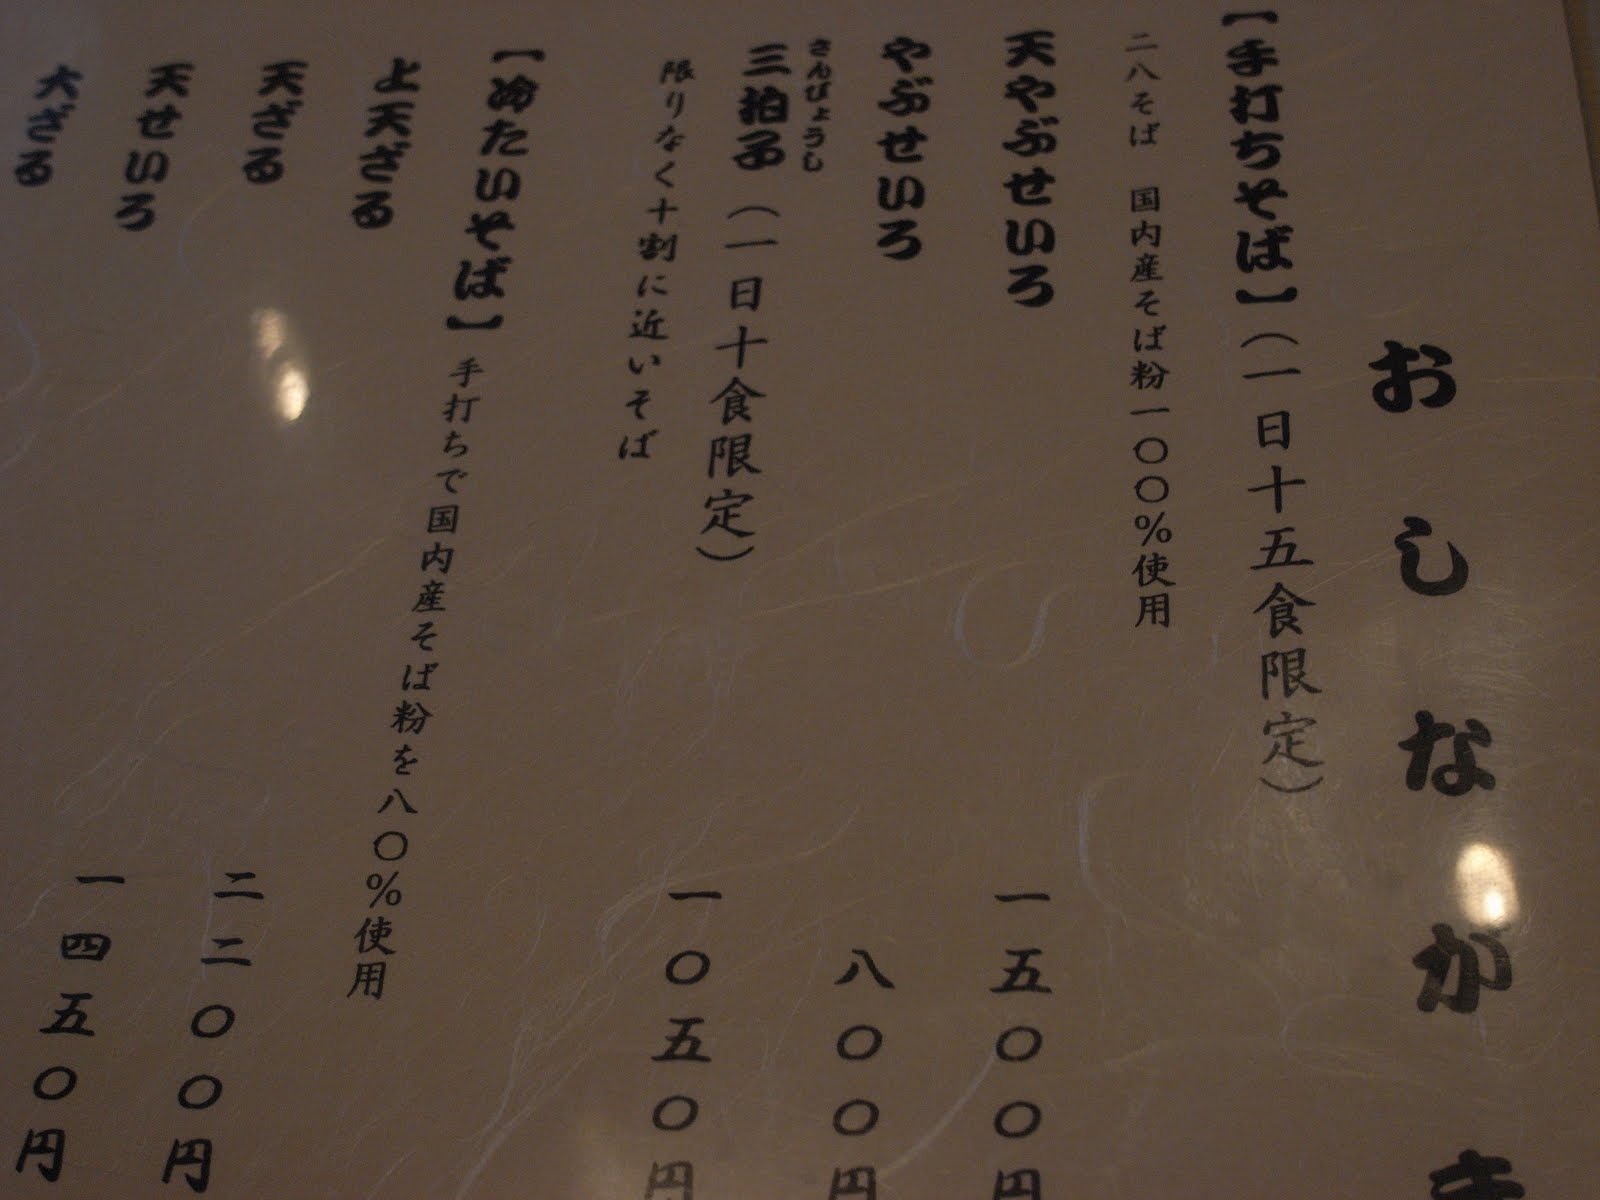 おしながき
【手打ちそば】（一日十五食限定）
二八そば　国内産そば粉一〇〇％使用
天やぶせいろ　一五〇〇円
やぶせいろ　八〇〇円
さんびょうし
三拍子（一日十食限定）　一〇五〇円
限りなく十割に近いそば
【冷たいそば】手打ちで国内産そば粉を八〇％使用
上天ざる　二二〇〇円
天ざる　一四五〇円
天せいろ
大ざる